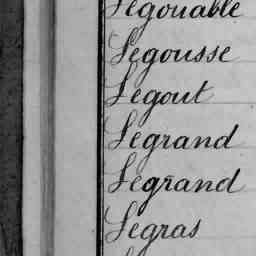 Legouable
Legousse
Legout
Legrand
Legrand
Legras